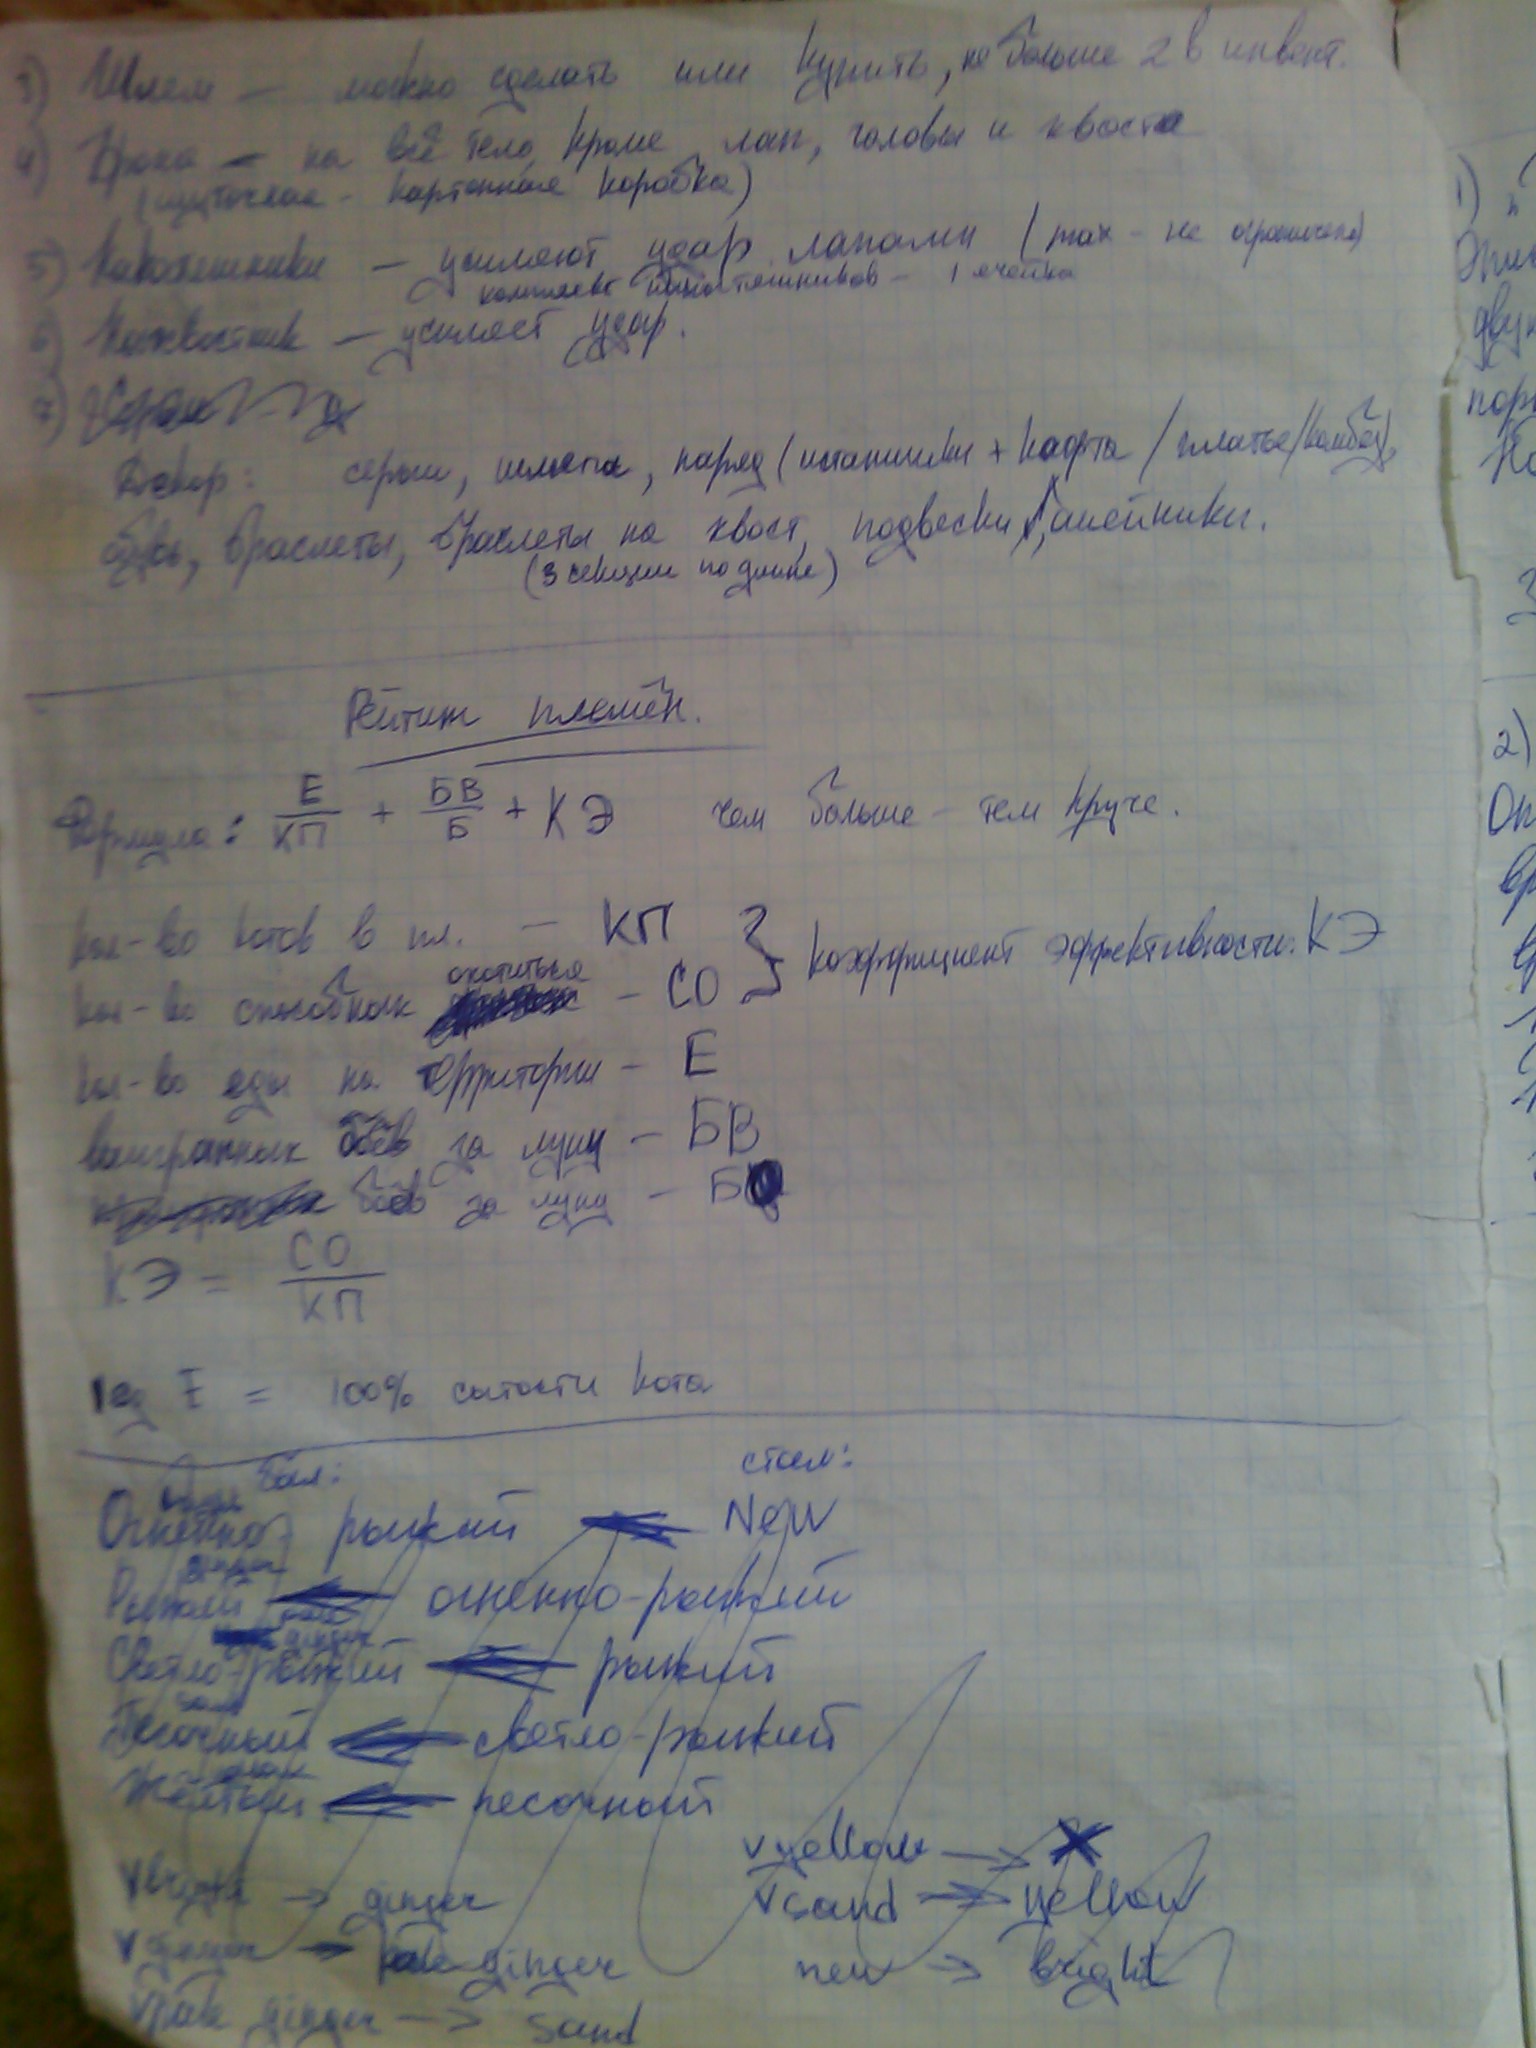 3) Шлем — можно сделать или купить, не больше 2 в инвент.
4) Броня — на всё тело, кроме лап, головы и хвоста
(шуточная - картонная коробка)
5) Накогтешники — усиляют удар лапами (max - не ограничено)
комплект накогтешников - 1 ячейка
6) Нахвостник — усиляет удар.
7)
Декор: серьги, шляпа, наряд (штанишки + кофта / платье/комбез),
обувь, браслеты, браслеты на хвост, подвески, ошейники.
(3 секции по длине)
Рейтинг племён.
Формула: Е/КП + БВ/Б + КЭ чем больше - тем круче.
кол-во котов в пл. — КП
кол-во способных охотиться — СО } коэффициент эффективности: КЭ
кол-во еды на территории — Е
выигранных боёв за луну — БВ
боёв за луну — Б
КЭ = СО/КП
1 ед Е = 100% сытости кота
Был: стал:
Огненно-рыжий ← New
ginger
Рыжий ← огненно-рыжий
ginger
Светло-рыжий ← рыжий
sand
Песочный ← светло-рыжий
Жёлтый ← песочный
v yellow → X
v bright → ginger
v sand → yellow
v ginger → pale-ginger
new → bright
v pale ginger → sand
1)
2)